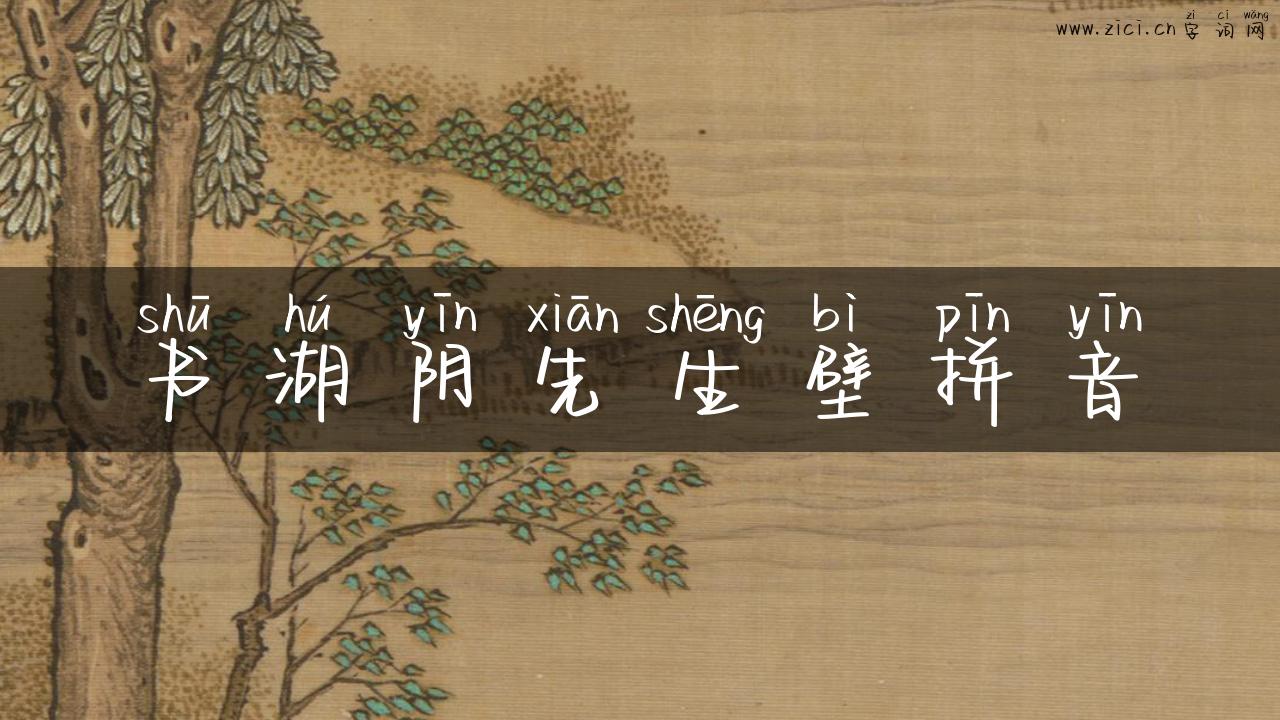 zì cí wǎng
www.zici.cn 字词网
shū hú yīn xiān shēng bì pīn yīn
书湖阴先生壁拼音